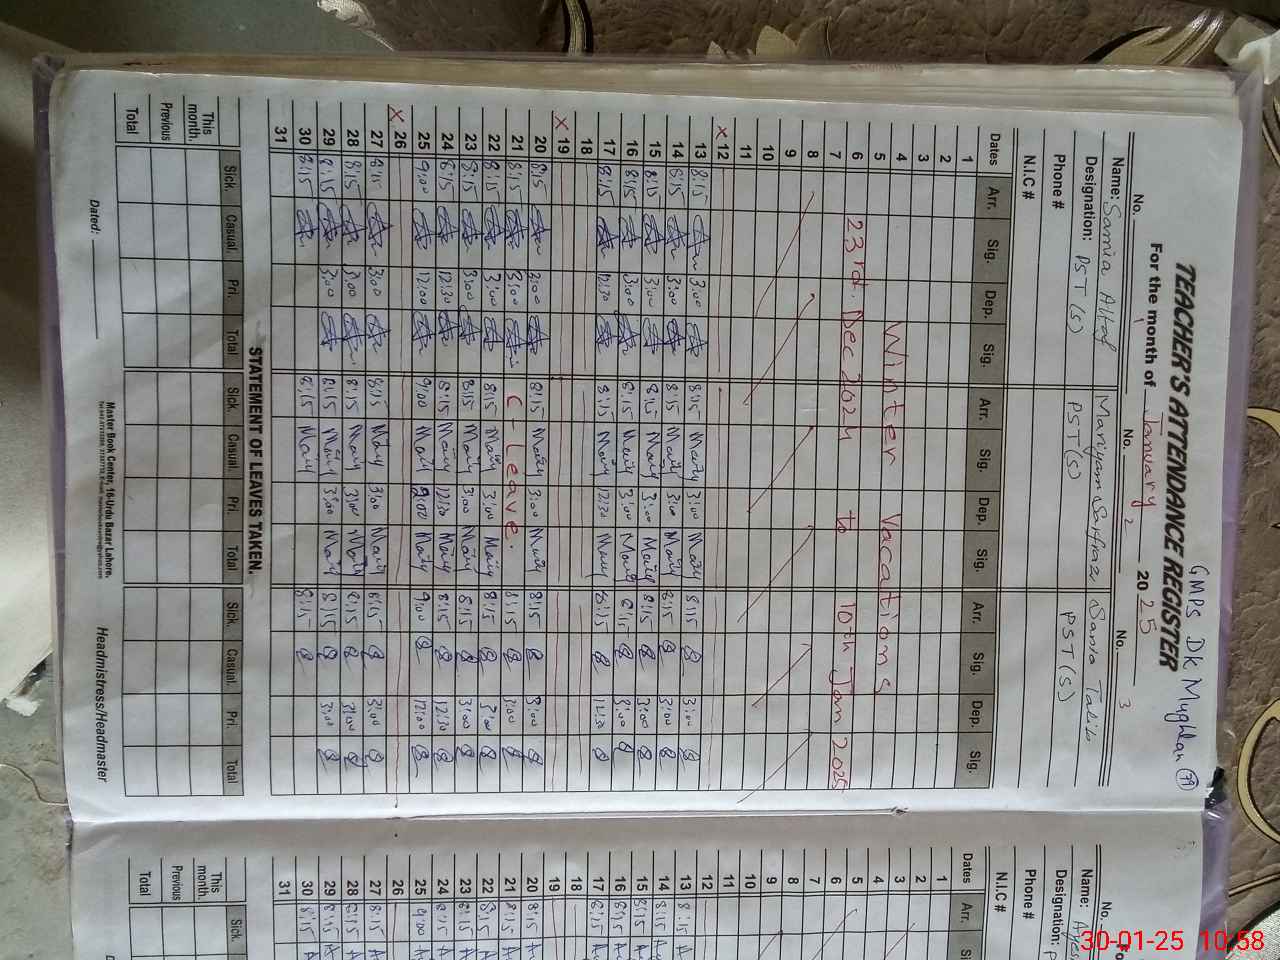 GMPS DK Mughlan 79
TEACHER'S ATTENDANCE REGISTER
For the month of January 2025
No. 1 No. 2 No. 3
Name: Samia Altaf Mariyam Sarfraz Sania Talib
Designation: PST (S) PST(S) PST(S)
Phone #
N.I.C #
Dates Arr. Sig. Dep. Sig. Arr. Sig. Dep. Sig. Arr. Sig. Dep. Sig.
1
2
3
4
Winter Vacations
5
6
23rd. Dec 2024 to 10th Jan 2025
7
8
9
10
11
X 12
13 8:15 3:00 8:15 Mary 3:00 Mary 8:15 3:00
14 8:15 3:00 8:15 Mary 3:00 Mary 8:15 3:00
15 8:15 3:00 8:15 Mary 3:00 Mary 8:15 3:00
16 8:15 3:00 8:15 Mary 3:00 Mary 8:15 3:00
17 8:15 12:30 8:15 Mary 12:30 Mary 8:15 12:30
18
X 19
20 8:15 3:00 8:15 Mary 3:00 Mary 8:15 3:00
21 8:15 3:00 C - leave. 8:15 3:00
22 8:15 3:00 8:15 Mary 3:00 Mary 8:15 3:00
23 8:15 3:00 8:15 Mary 3:00 Mary 8:15 3:00
24 8:15 12:30 8:15 Mary 12:30 Mary 8:15 12:30
25 9:00 12:00 9:00 Mary 2:00 Mary 9:00 12:00
X 26
27 8:15 3:00 8:15 Mary 3:00 Mary 8:15 3:00
28 8:15 3:00 8:15 Mary 3:00 Mary 8:15 3:00
29 8:15 3:00 8:15 Mary 3:00 Mary 8:15 3:00
30 8:15 8:15 Mary 8:15
31
STATEMENT OF LEAVES TAKEN.
Sick. Casual. Pri. Total Sick. Casual. Pri. Total Sick. Casual. Pri. Total
This month.
Previous
Total
Dated:
Master Book Center, 16-Urdu Bazar Lahore.
Headmistress/Headmaster
No.
Name:
Designation:
Phone #
N.I.C #
Dates Arr.
1
2
3
4
5
6
7
8
9
10
11
12
13 8:15
14 8:15
15 8:15
16 8:15
17 8:15
18
19
20 8:15
21 8:15
22 8:15
23 8:15
24 8:15
25 9:00
26
27 8:15
28 8:15
29 8:15
30 8:15
31
Sick.
This month.
Previous
Total
30-01-25 10:58